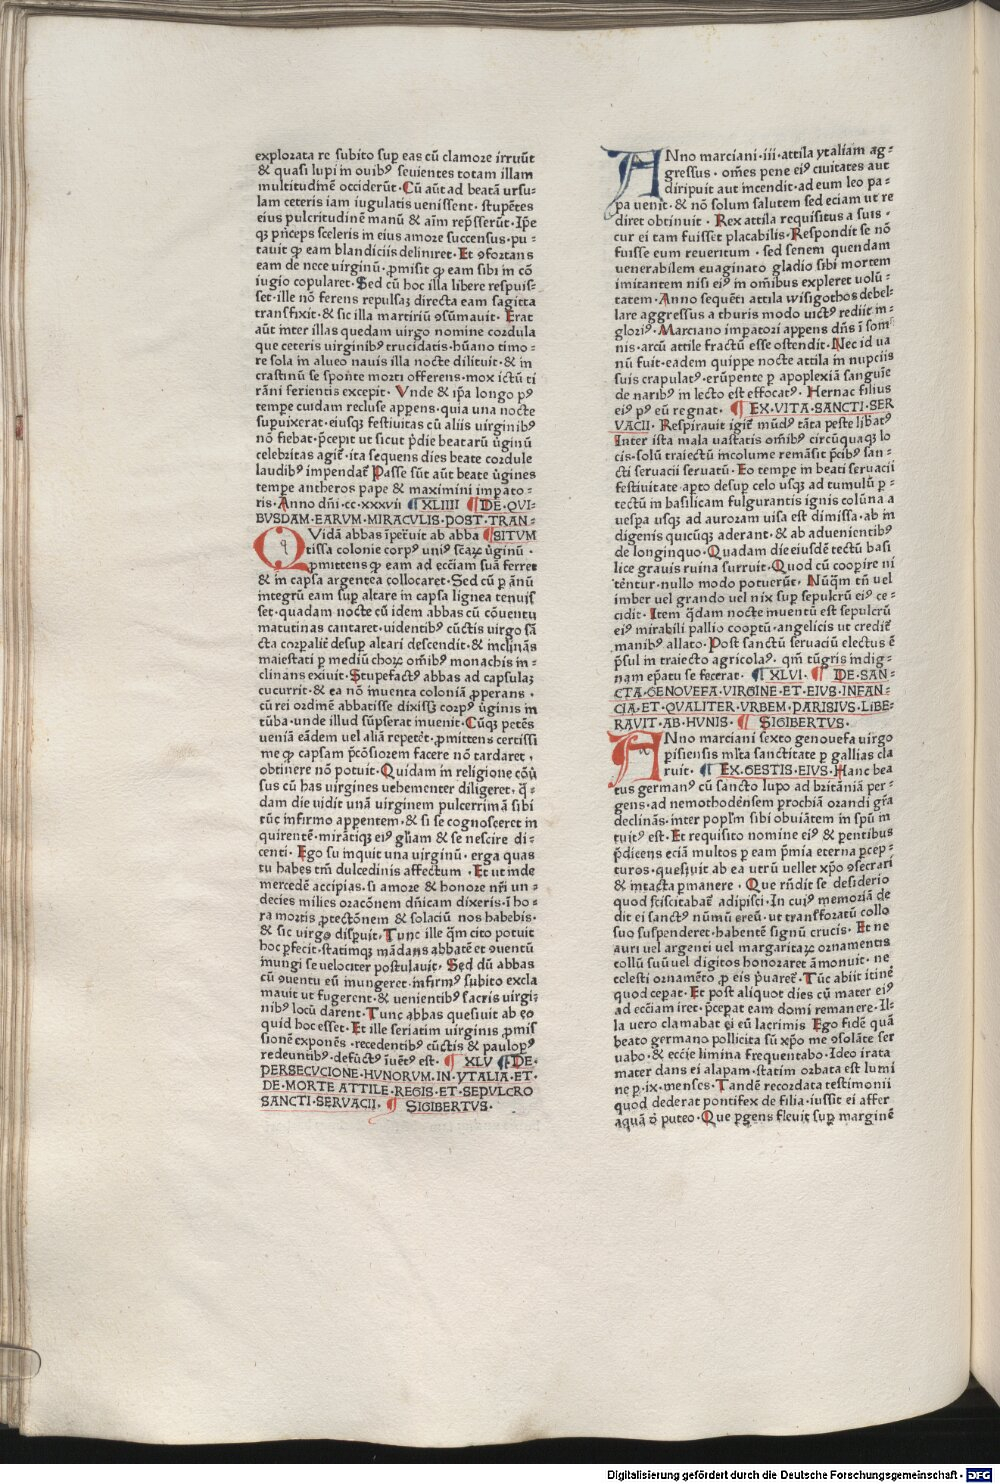 explorata re subito sup̱ eas cū clamore irruūt
& quasi lupi in ouib⁹ seuientes totam illam
multitudinē occiderūt· Cū aūt ad beatā ursu-
lam ceteris iam iugulatis uenissent· stupētes
eius pulcritudinē manū & aīm rep̄sserūt· Ip̄e
qꝫ p̄nceps sceleris in eius amore succensus· pu-
tauit ꝙ eam blandiciis deliniret· Et ꝯfortans
eam de nece virginū· ꝓmisit ꝙ eam sibi in cō
iugio copularet· Sed cū hoc illa libere respuis-
set· ille nō ferens repulsaꝫ directa eam sagitta
transfixit· & sic illa martiriū ꝯsūmauit· Erat
aūt inter illas quedam virgo nomine cordula
que ceteris virginib⁹ trucidatis· hūano timo-
re sola in alueo nauis illa nocte dilituit· & in
crastinū se sponte morti offerens· mox ictū ti
rāni ferientis excepit· Vnde & ip̄a longo p⁹
tempe cuidam recluse appens· quia una nocte
supuixerat· eiusqꝫ festiuitas cū aliis virginib⁹
nō fiebat· p̄cepit ut sicut p̄die beatarū ūginū
celebritas agit̄· ita sequens dies beate cordule
laudib⁹ impendat̄ Passe sūt aūt beate ūgines
tempe antheros pape & maximini impato-
ris· Anno dn̄i· cc· xxxvii ¶ XLIIII ¶ DE· QVI-
BVSDAM· EARVM· MIRACVLIS· POST· TRAN-
QVidā abbas īpet̄uit ab abba ¶ SITVM
tissa colonie corp⁹ uni⁹ sc̄aꝝ ūginū ·
ꝓmittens ꝙ eam ad ecc̄iam suā ferret
& in capsa argentea collocaret· Sed cū p ānū
integrū eam sup̱ altare in capsa lignea tenuis
set· quadam nocte cū idem abbas cū cōuentu
matutinas cantaret· uidentib⁹ cūctis virgo sā
cta corpalit̄ desup̱ altari descendit· & inclinās
maiestati p mediū choꝝ om̄ib⁹ monachis in-
clinans exiuit· Stupefact⁹ abbas ad capsulaꝫ
cucurrit· & ea nō inuenta coloniā ꝓperans ·
cū rei ordinē abbatisse dixiss̄ corp⁹ ūginis in
tūba· unde illud sūpserat inuenit· Cūqꝫ petēs
ueniā eādem uel aliā repetēt· ꝓmittens certissi
me ꝙ capsam p̄cōsiorem facere nō tardaret ·
obtinere nō potuit· Quidam in religione cōu̇
sus cū has virgines uehementer diligeret· q̄-
dam die uidit unā virginem pulcerrimā sibi
tūc infirmo appentem· & si se cognosceret in
quirentē· mirātiqꝫ ei⁹ gl̄iam & se nescire di-
centi· Ego su inquit una virginū· erga quas
tu habes tm̄ dulcedinis affectum · Et ut inde
mercedē accipias· si amore & honore nr̄i un-
decies milies orac̄onem dn̄icam dixeris· ī ho-
ra mortis ꝓtectōnem & solaciū nos habebis·
& sic virgo disp̱uit· Tunc ille q̄m cito potuit
hoc ꝑfecit· statimqꝫ mādans abbatē et ꝯuentū
inungi se uelociter postulauit· Sed dū abbas
cū ꝯuentu eū inungeret· infirm⁹ subito excla
mauit ut fugerent· & uenientib⁹ sacris virgi-
nib⁹ locū darent· Tunc abbas quesiuit ab eo
quid hoc esset· Et ille seriatim virginis ꝓmis
sionē exponēs · recedentib⁹ cūctis & paulop⁹
redeuntib⁹· defūct⁹ īuēt⁹ est· ¶ XLV ¶ DE·
PERSECVCIONE· HVNORVM· IN· YTALIA· ET·
DE· MORTE ATTILE· REGIS· ET· SEPVLCRO
SANCTI· SERVACII· ¶ SIGIBERTVS·
ANno marciani· iii· attila ytaliam ag-
gressus · om̄es pene ei⁹ ciuitates aut
diripuit aut incendit· ad eum leo pa-
pa uenit· & nō solum salutem sed eciam ut re
diret obtinuit · Rex attila requisitus a suis ·
cur ei tam fuisset placabilis· Respondit se nō
fuisse eum reueritum · sed senem quendam
uenerabilem euaginato gladio sibi mortem
imitantem nisi ei⁹ in om̄ibus expleret uolū-
tatem· Anno sequēti attila wisigothos debel-
lare aggressus a thuris modo uict⁹ rediit in-
glori⁹· Marciano impatori appens dn̄s ī som̄
nis· arcū attile fractū esse ostendit· Nec id ua
nū fuit· eadem quippe nocte attila in nupciis
suis crapulat⁹· erūpente p apoplexiā sanguīe
de narib⁹ in lecto est effocat⁹· Hernac filius
ei⁹ p⁹ eū regnat· ¶ EX· VITA· SANCTI· SER
VACII· Respirauit igit̄ mūd⁹ tāta peste libat⁹
Inter ista mala uastatis om̄ib⁹ circūquaqꝫ lo
cis· solū traiectū incolume remāsit p̄cib⁹ san-
cti seruacii seruatū· Eo tempe in beati seruacii
festiuitate apto desup̱ celo usqꝫ ad tumulū p-
tectū in basilicam fulgurantis ignis colūna a
uesp̱a usqꝫ ad auroram uisa est dimissa· ab in
digenis quicūqꝫ aderant· & ab aduenientib⁹
de longinquo· Quadam die eiusdē tectū basi
lice grauis ruina surruit· Quod cū coopire ni
tēntur· nullo modo potuerūt· Nūq̄m tn̄ uel
imber uel grando uel nix sup̱ sepulcrū ei⁹ ce-
cidit· Item q̄dam nocte inuentū est sepulcrū
ei⁹ mirabili pallio cooptū· angelicis ut credit̄
manib⁹ allato· Post sanctū seruaciū electus ē
p̄sul in traiecto agricola⁹· qm̄ tūgris indig-
nam ep̄atu se fecerat· ¶ XLVI· ¶ DE· SAN-
CTA· GENOVEFA· VIRGINE· ET· EIVS· INFAN-
CIA· ET· QVALITER· VRBEM· PARISIVS· LIBE-
RAVIT· AB· HVNIS· ¶ SIGIBERTVS·
ANno marciani sexto genouefa uirgo
pisiensis ml̄ta sanctitate p gallias cla
ruit· ¶ EX· GESTIS· EIVS· Hanc bea
tus german⁹ cū sancto lupo ad britāniā per-
gens· ad nemothodēnsem ꝓchiā orandi gr̄a
declinās· inter popl̄m sibi obuiātem in sp̄u in
tuit⁹ est· Et requisito nomine ei⁹ & pentibus
p̄dicens eciā multos p eam p̄mia eterna p̄cep-
turos· quesiuit ab ea utrū uellet xp̄o ꝯsecrari
& intacta pmanere · Que rn̄dit se desiderio
quod sciscitabat̄ adipisci· In cui⁹ memoriā de
dit ei sanct⁹ nūmū ereū· ut transforatū collo
suo suspenderet· habentē signū crucis· Et ne
auri uel argenti uel margaritaꝝ ornamentis
collū suū uel digitos honoraret āmonuit· ne
celesti ornamēto ꝓ eis p̄uaret̄· Tūc abiit itinē
quod cepat· Et post aliquot dies cū mater ei⁹
ad ecc̄iam iret· p̄cepat eam domi remanere· Il-
la uero clamabat ei eū lacrimis Ego fidē quā
beato germano pollicita sū xp̄o me ꝯsolāte ser
uabo· & ecc̄ie limina frequentabo· Ideo irata
mater dans ei alapam· statim orbata est lumi
ne p· ix· menses· Tandē recordata testimonii
quod dederat pontifex de filia· iussit ei affer
aquā d̄ puteo· Que pgens fleuit sup̱ marginē
Digitalisierung gefördert durch die Deutsche Forschungsgemeinschaft - DFG